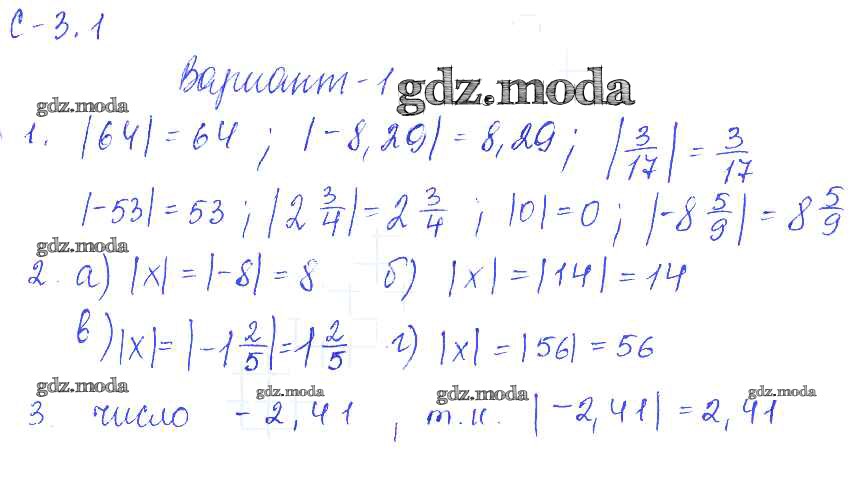 С-3.1
Вариант-1
gdz.moda
gdz.moda
1. |64| = 64 ; |-8,29| = 8,29 ; |3/17| = 3/17
|-53| = 53 ; |2 3/4| = 2 3/4 ; |0| = 0 ; |-8 5/9| = 8 5/9
gdz.moda
2. а) |x| = |-8| = 8 б) |x| = |14| = 14
в) |x| = |-1 2/5| = 1 2/5 г) |x| = |56| = 56
gdz.moda gdz.moda gdz.moda gdz.moda
3. число -2,41 , т.к. |-2,41| = 2,41